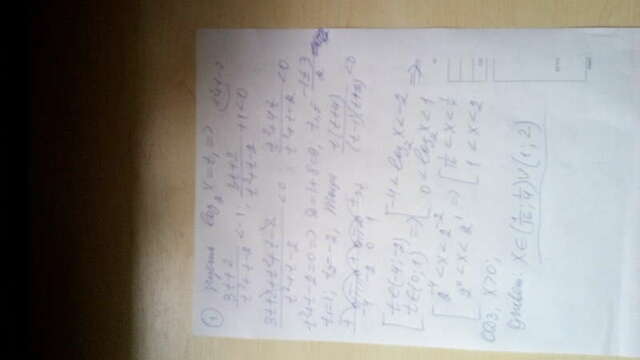 1) пусть log₂ x = t, =>
(3t+2)/(t²+t-2) < -1; (3t+2)/(t²+t-2) + 1 < 0
(3t+2+t²+t-2)/(t²+t-2) < 0 ; (t²+4t)/(t²+t-2) < 0
t²+t-2=0 => D=1+8=9, t₁,₂ = (-1±3)/2
t₁=1; t₂=-2, тогда t(t+4)/((t-1)(t+2)) < 0
-4 -2 0 1
[ t∈(-4;-2) t∈(0;1) => [ -4 < log₂ x < -2 0 < log₂ x < 1 =>
[ 2⁻⁴ < x < 2⁻² 2⁰ < x < 2¹ => [ 1/16 < x < 1/4 1 < x < 2
ОДЗ; x>0;
Ответ: x∈(1/16; 1/4)∪(1; 2)